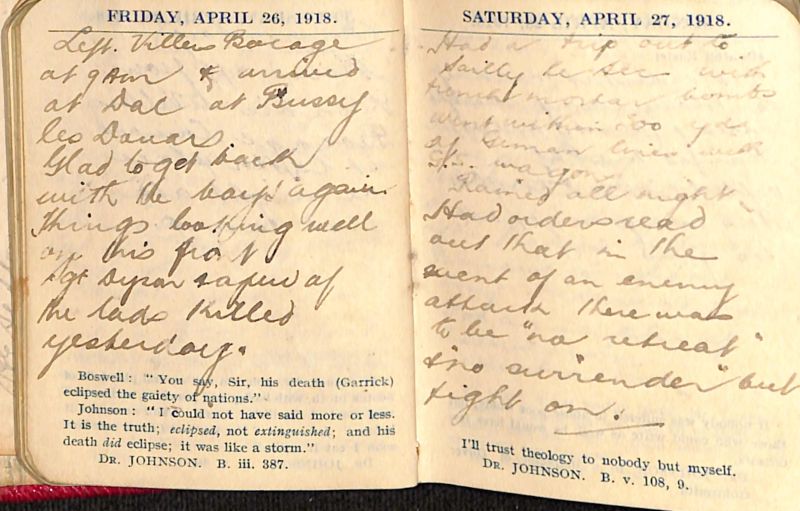 FRIDAY, APRIL 26, 1918.
Left Villers Bocage
at 9 am & arrived
at Dac at Bussy
les Daours
Glad to get back
with the boys again
Things looking well
on this front
Sgt a few of
the lads killed
yesterday.
Boswell: "You say, Sir, his death (Garrick)
eclipsed the gaiety of nations."
Johnson: "I could not have said more or less.
It is the truth; eclipsed, not extinguished; and his
death did eclipse; it was like a storm."
DR. JOHNSON. B. iii. 387.
SATURDAY, APRIL 27, 1918.
Had a trip out to
Sailly le Sec with
trench mortar bombs
went within 800 yds
of German lines with
wagons
Rained all night
Had orders read
out that in the
event of an enemy
attack there was
to be "no retreat"
& "no surrender" but
fight on!
I'll trust theology to nobody but myself.
DR. JOHNSON. B. v. 108, 9.